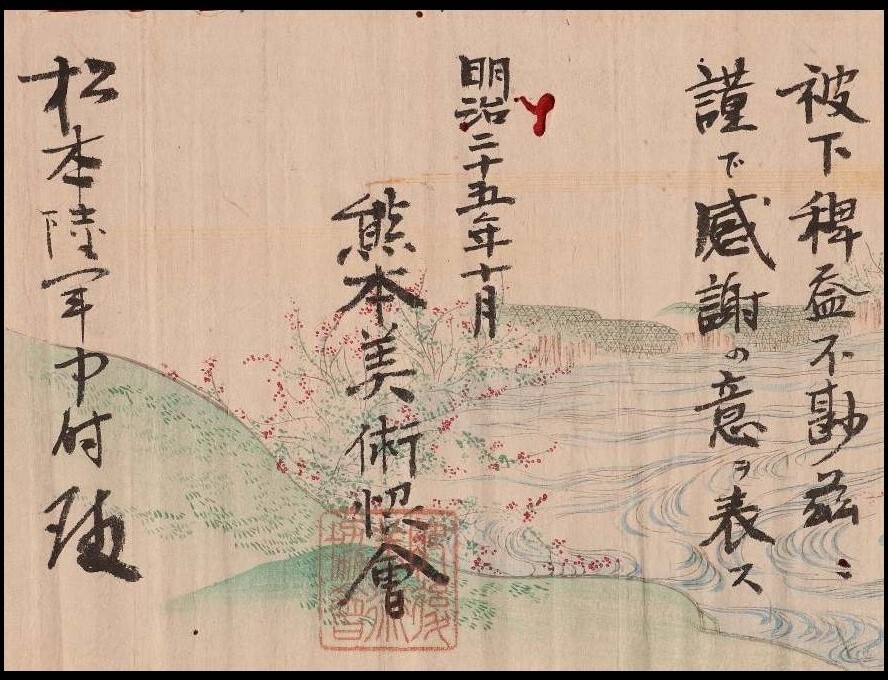 被下稗益不尠茲ニ
謹で感謝の意ヲ表ス
明治二十五年十月
熊本美術恊會
松本陸軍中尉殿